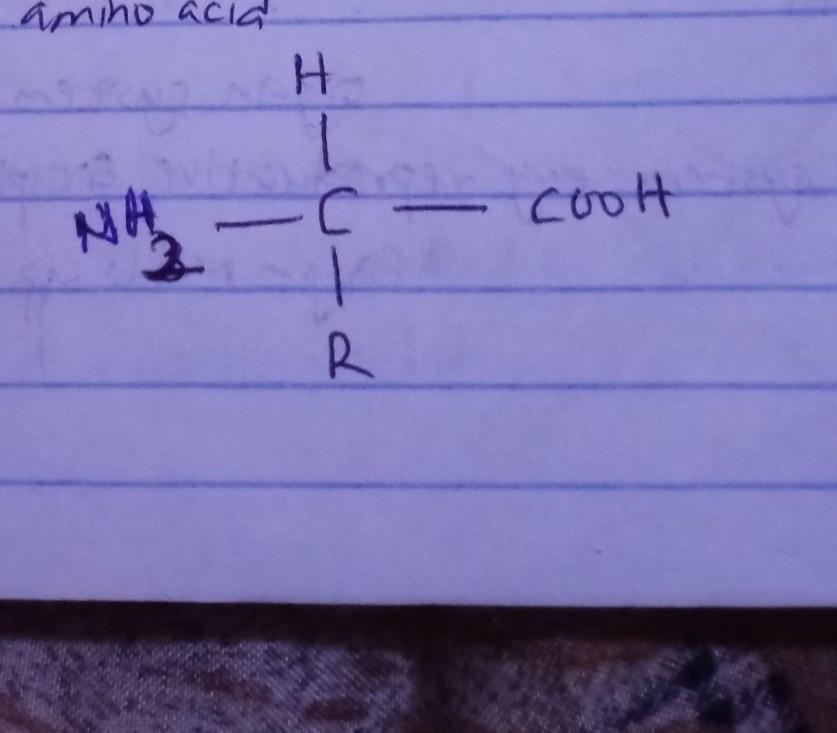 amino acid
H
NH2 — C — COOH
R